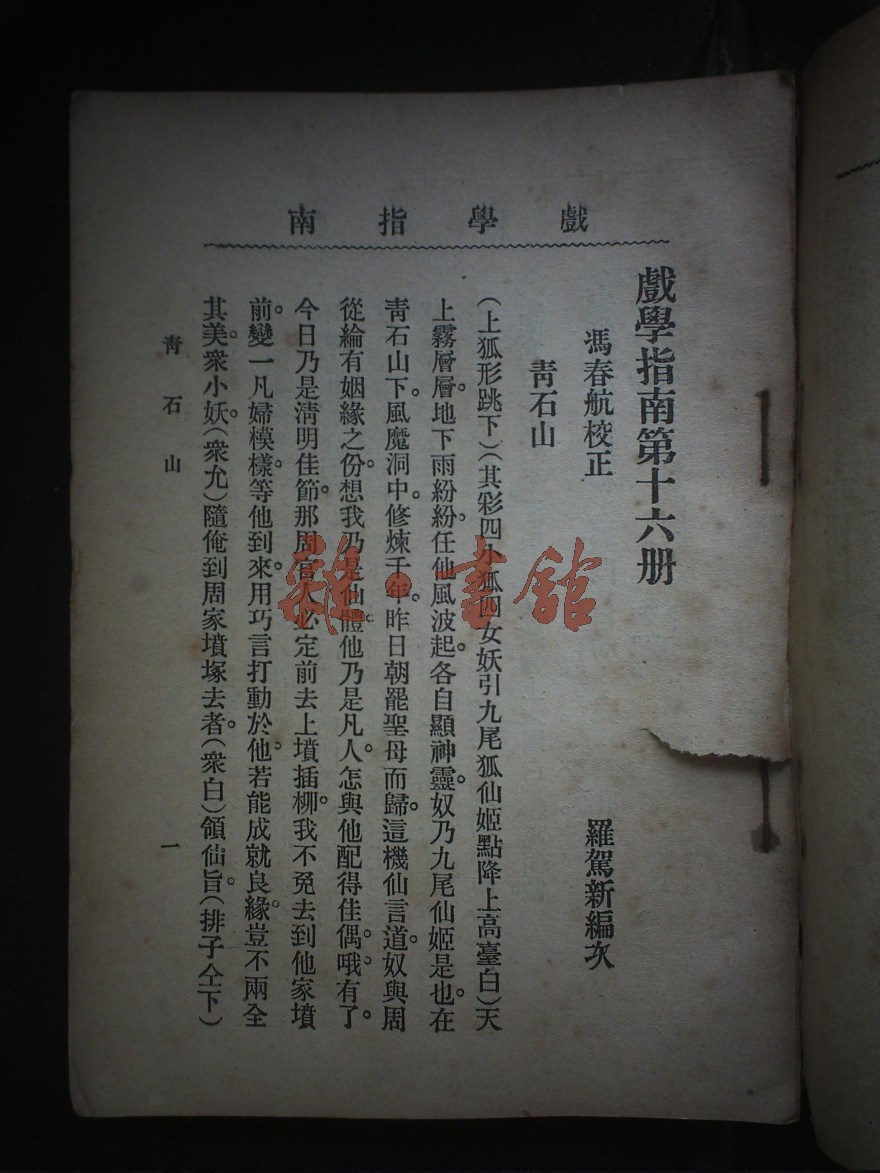 戲學指南
戲學指南第十六册
馮春航校正 羅駕新編次
靑石山
(上狐形跳下)(其彩四小狐四女妖引九尾狐仙姬點降上高臺白)天
上霧層層。地下雨紛紛。任他風波起。各自顯神靈。奴乃九尾仙姬是也。在
靑石山下。風魔洞中。修煉千年。昨日朝罷聖母而歸。這機仙言道。奴與周
從綸有姻緣之份。想我乃是仙體。他乃是凡人。怎與他配得佳偶。哦。有了。
今日乃是淸明佳節。那周官人必定前去上墳插柳。我不免去到他家墳
前。變一凡婦模樣。等他到來。用巧言打動於他。若能成就良緣。豈不兩全
其美。衆小妖。(衆允)隨俺到周家墳塚去者。(衆白)領仙旨。(排子仝下)
靑石山 一
雜·書館